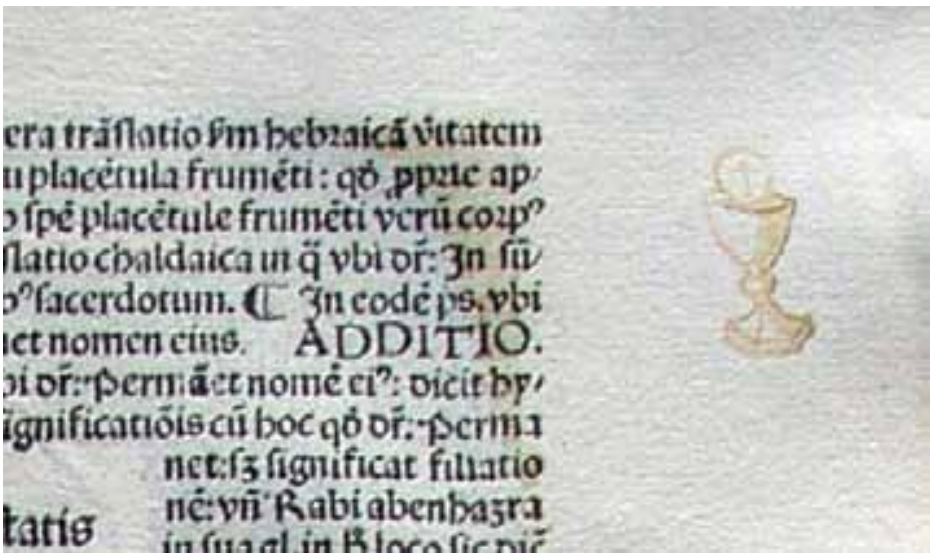 era trãſlatio ẜm hebraicã v̾itatem
placẽtula frumẽti : qđ ꝓprie ap/
ſpẽ placẽtule frumẽti verũ corpꝰ
ſlatio chaldaica in q̃ vbi dr̃: In ſũ/
ſacerdotum. ¶ In eodẽ ps. vbi
et nomen eius. ADDITIO.
bi dr̃: Permãet nomẽ eiꝰ: dicit hy/
ignificatiõis cũ hoc qđ dr̃: Perma
net: ſꝫ ſignificat filiatio
nẽ: vñ Rabi abenhazra
tatis
in ſua gl. in loco ſic